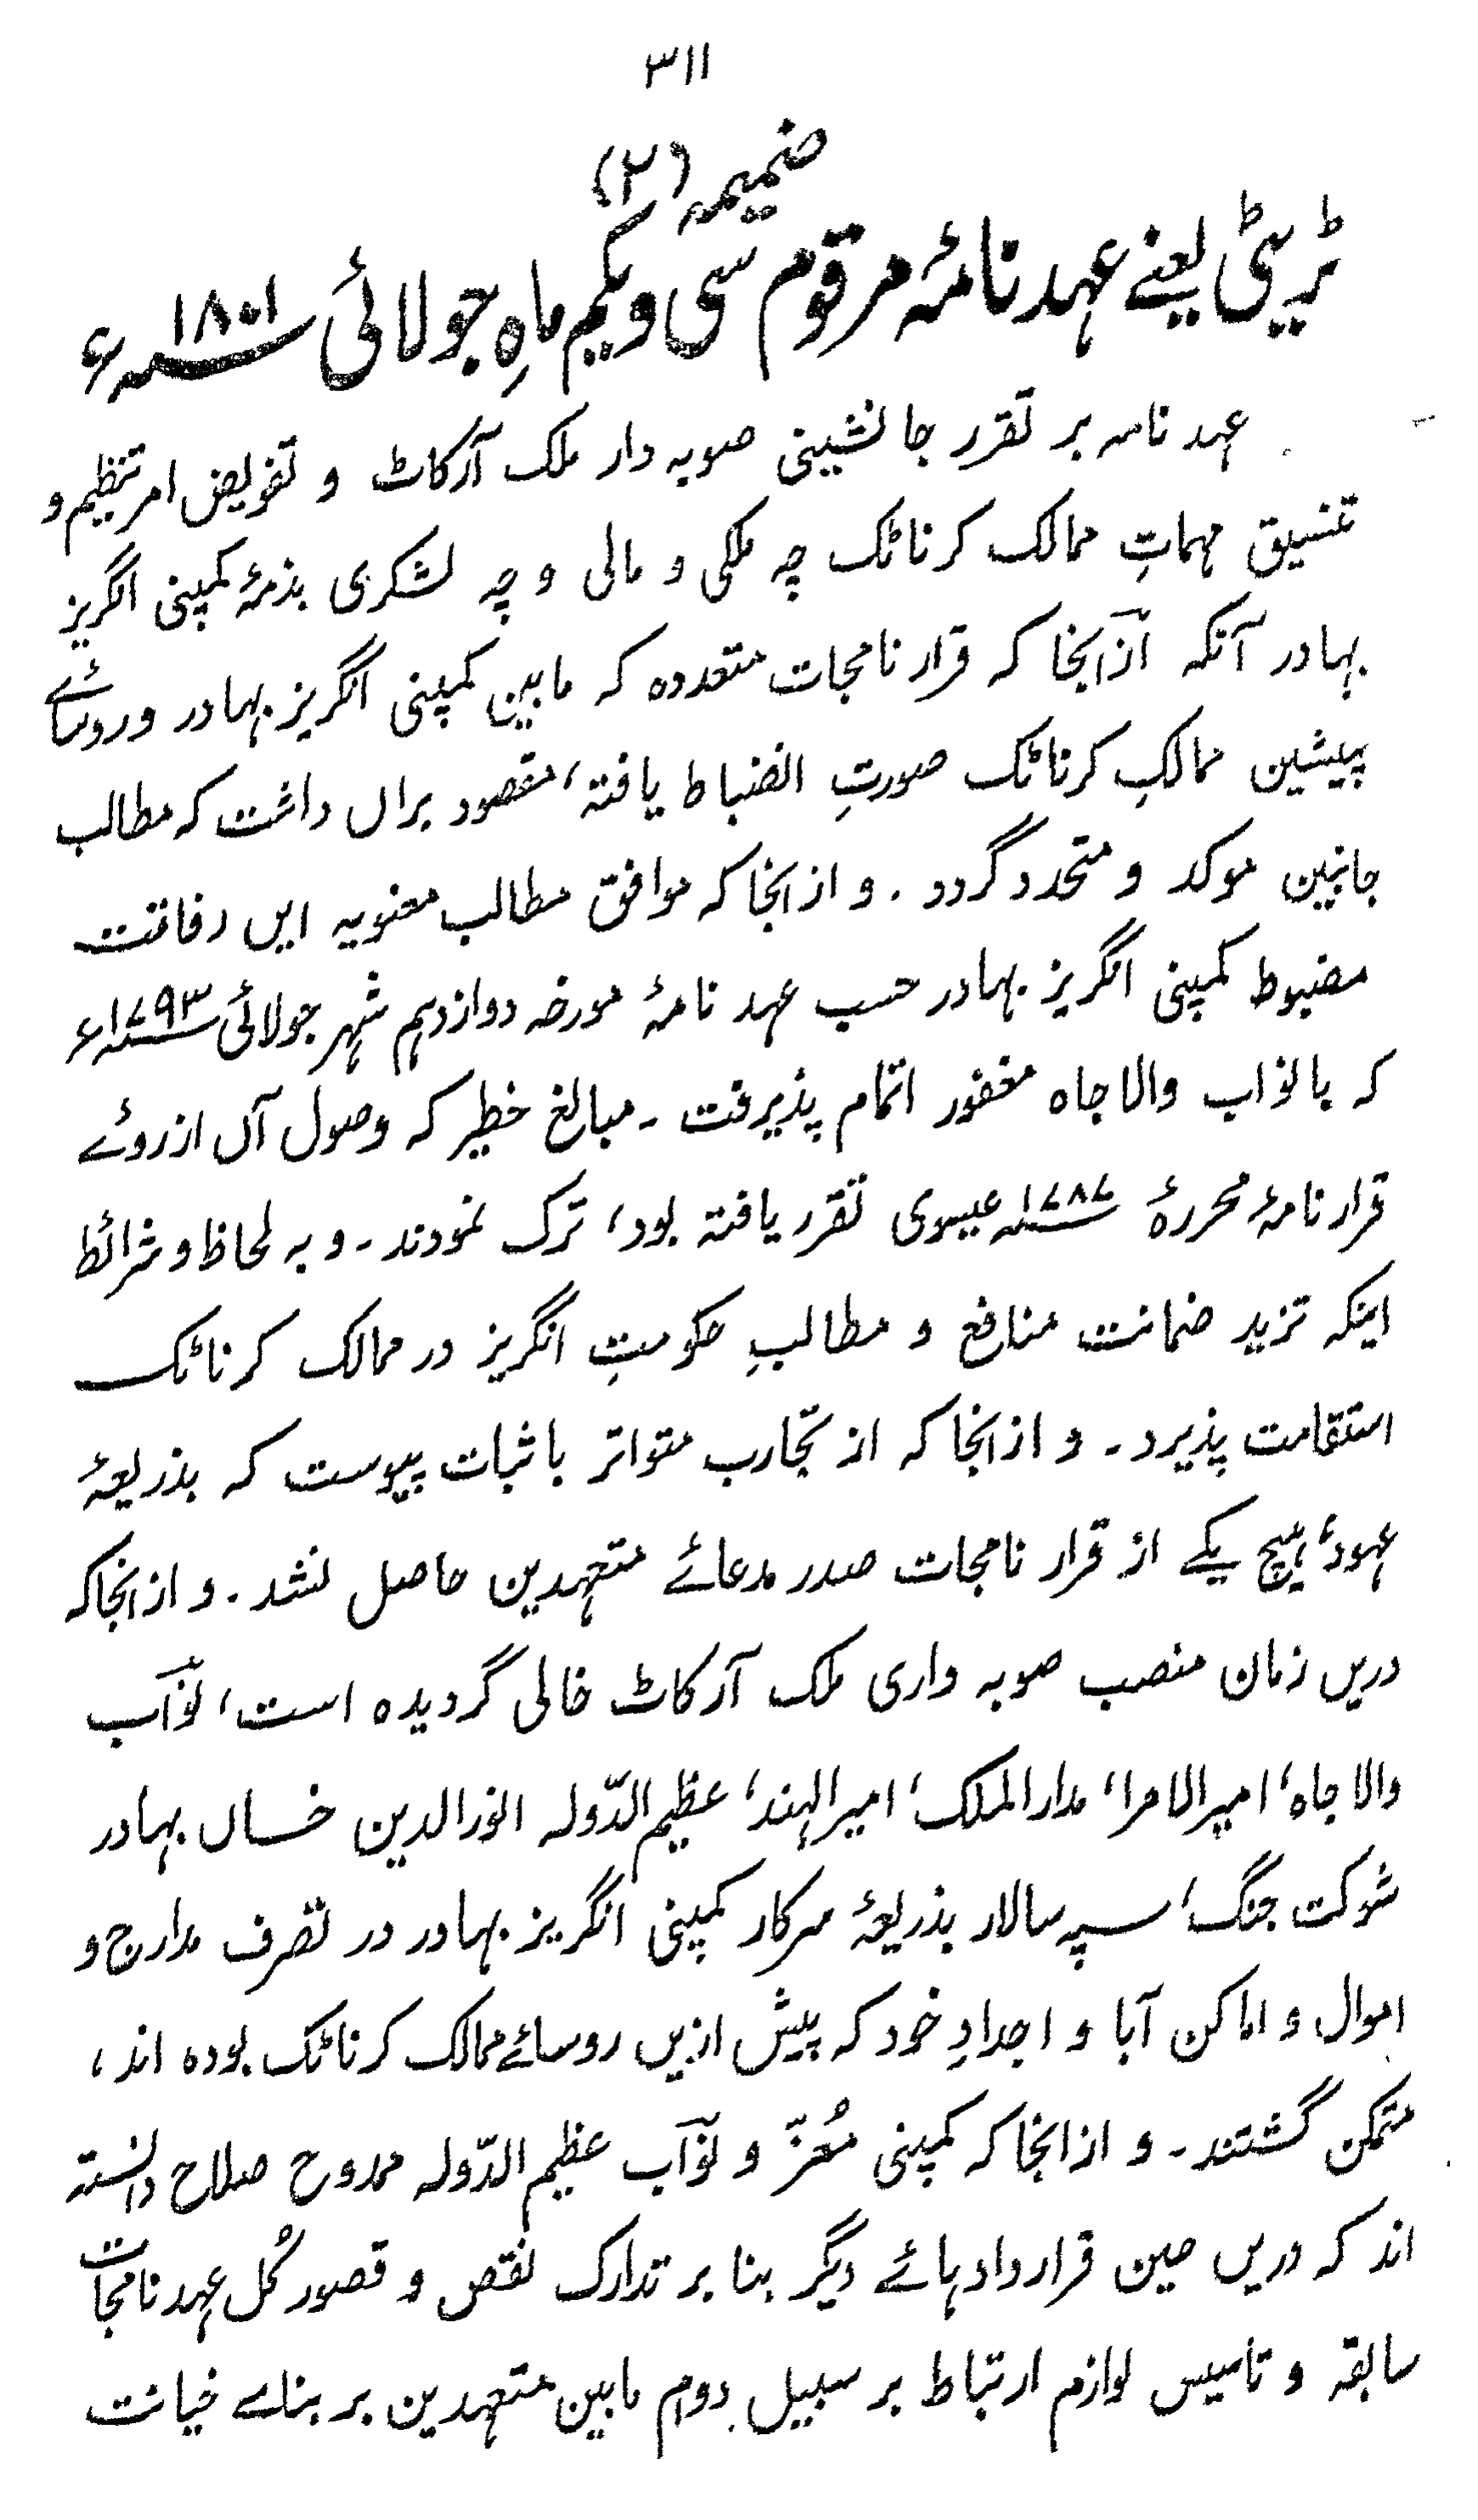 ۳۱۱
ضمیمہ (۲)
ٹریٹی یعنے عہدنامۂ مرقوم سی و یکم ماہِ جولائی ۱۸۰۱ء
عہد نامہ بر تقرر جانشینی صوبہ دار ملک آرکاٹ و تفویض امر تنظیم و
تنسیق مہماتِ ممالک کرناٹک چہ ملکی و مالی و چہ لشکری بذمۂ کمپنی انگریز
بہادر آنکہ ازآنجا کہ قرار نامجات متعددہ کہ مابین کمپنی انگریز بہادر و روسائے
پیشین ممالکِ کرناٹک صورتِ انضباط یافتہ، مقصود براں داشت کہ مطالب
جانبین موکد و متحد گردد. و ازانجا کہ موافق مطالب معنویہ ایں رفاقت
مضبوط کمپنی انگریز بہادر حسب عہد نامۂ مورخہ دوازدہم شہر جولائی ۱۷۹۳ء
کہ با نواب والا جاہ مغفور اتمام پذیرفت ۔ مبالغ خطیر کہ وصول آں ازروئے
قرار نامۂ محررۂ ۱۷۸۷ عیسوی تقرر یافتہ بود، ترک نمودند ۔ و بہ لحاظ و شرائط
اینکہ تزید ضمانت منافع و مطالبِ حکومتِ انگریز در ممالک کرناٹک
استقامت پذیرد ۔ و ازانجا کہ از تجارب متواتر باثبات پیوست کہ بذریعۂ
عہود، ہیچ یکے از قرار نامجات صدر مدعائے متعہدین حاصل نشد. و ازانجا کہ
دریں زمان منصب صوبہ داری ملک آرکاٹ خالی گردیدہ است، نوّاب
والا جاہ، امیرالامرا، مدارالملک، امیرالہند، عظیم الدّولہ انورالدین خاں بہادر
شوکت جنگ، سپہ سالار بذریعۂ سرکار کمپنی انگریز بہادر در تصرف مدارج و
اموال و اماکن آبا و اجدادِ خود کہ پیش ازیں روسائے ممالک کرناٹک بودہ اند،
متمکن گشتند ۔ و ازانجا کہ کمپنی مُعزّ و نوّاب عظیم الدّولہ ممدوح صلاح دانستہ
اند کہ دریں حین قرارداد ہائے دیگر بنا بر تدارک نقص و قصور کُل عہدنامجات
سابقہ و تاسیس لوازم ارتباط بر سبیل دوام مابین متعہدین بر بنائے خیانت